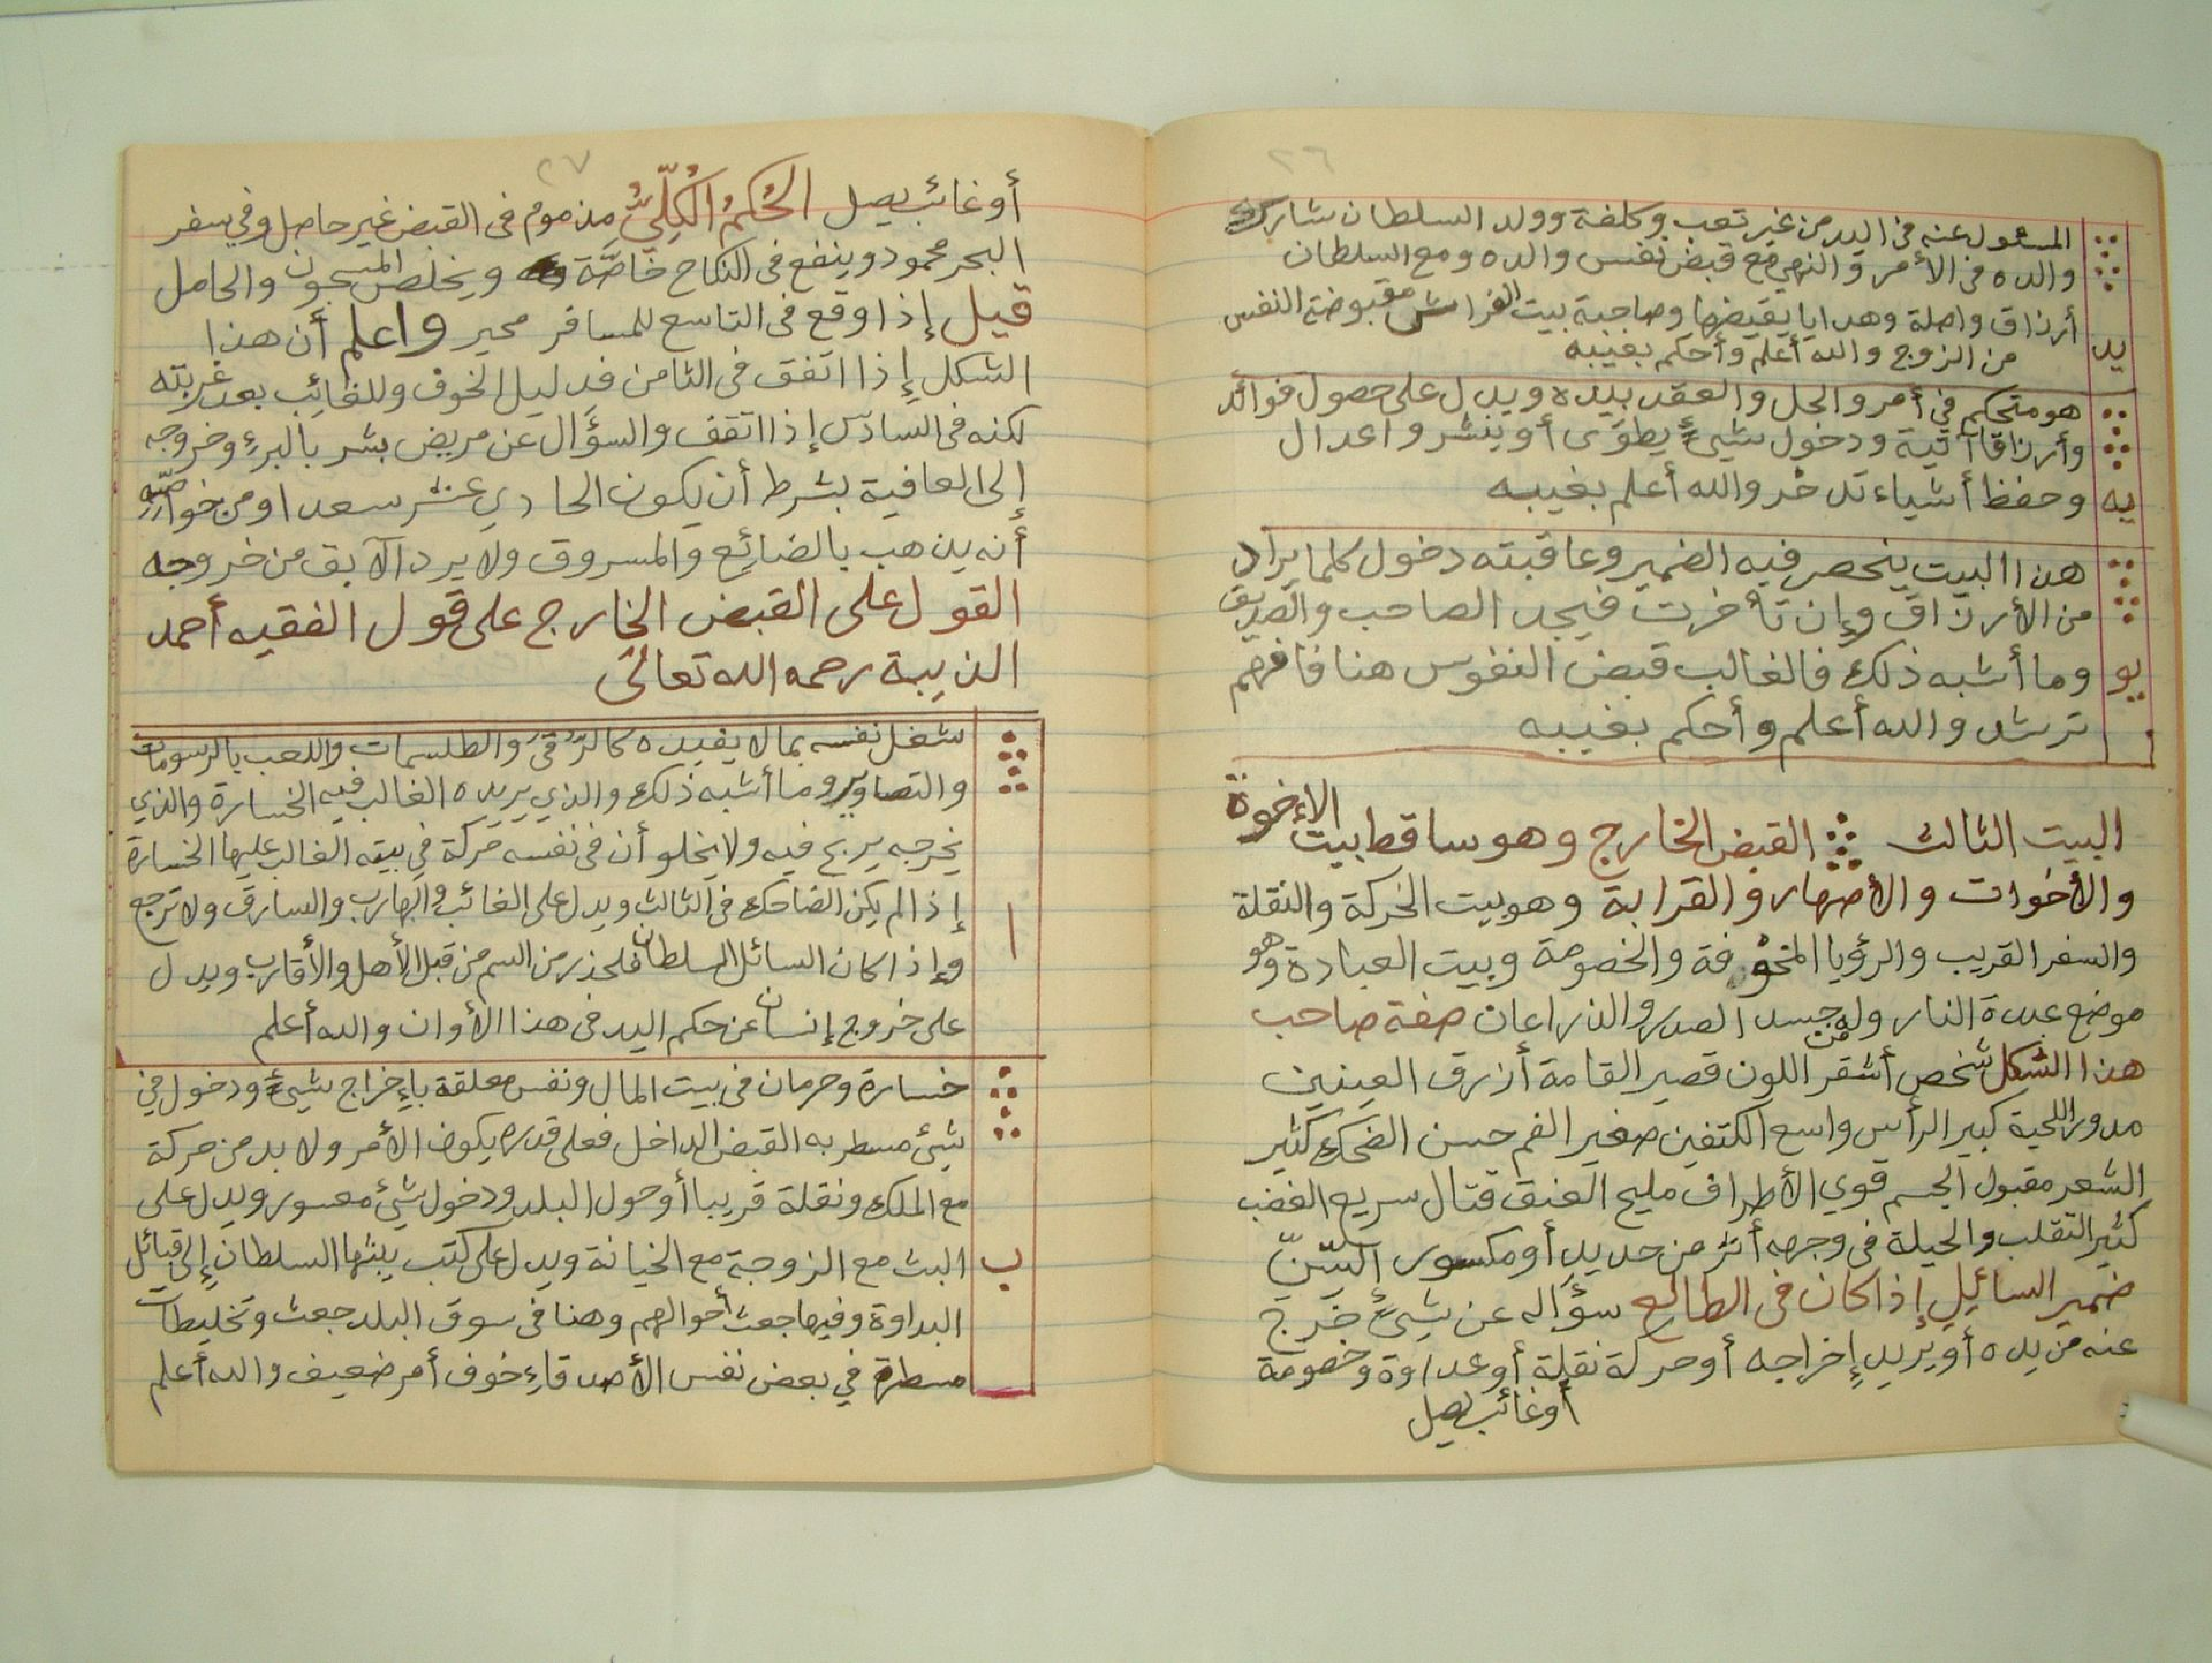 ٢٦
المسئول عنه في اليد من غير تعب وكلفة وولد السلطان شارك
والده في الأمر والنهي مع قبض نفس والده ومع السلطان
أرزاق واصلة وهدايا يقبضها وصاحبة بيت الفراش مقبوضة النفس
يد
من الزوج والله أعلم وأحكم بغيبه
هو متحكم في أمر والحل والعقد بيده ويدل على حصول فوائد
وأرزاقا آتية ودخول شيئ يطوى أو ينشر واعدال
يه وحفظ أشياء تدخر والله أعلم بغيبه
هذا البيت ينحصر فيه الضمير وعاقبته دخول كلما يراد
من الأرزاق وإن تأخرت فيجد الصاحب والصديق
يو وما أشبه ذلك فالغالب قبض النفوس هنا فافهم
ترشد والله أعلم وأحكم بغيبه
البيت الثالث القبض الخارج وهو ساقط بيت الإخوة
والأخوات والأصهار والقرابة وهو بيت الحركة والنقلة
والسفر القريب والرؤيا المخوفة والخصومة وبيت العبادة وهو
موضع عبدة النار وله من جسد الصدر والذراعان صفة صاحب
هذا الشكل شخص أشقر اللون قصير القامة أزرق العينين
مدور اللحية كبير الرأس واسع الكتفين صغير الفم حسن الضحك كثير
الشعر مقبول الجسم قوي الأطراف مليح العنق قتال سريع الغضب
كثير التقلب والحيلة في وجهه أثر من حديد أو مكسور السن
ضمير السائل إذا كان في الطالع سؤاله عن شيئ خرج
عنه من يده أو يريد إخراجه أو حركة نقلة أو عداوة وخصومة
أو غائب يصل
٢٧
أو غائب يصل الحُكمُ الكُلِّيُّ مذموم في القبض غير حاصل وفي سفر
البحر محمود وينفع في النكاح خاصَّة ويخلص المسجون والحامل
قيل إذا وقع في التاسع للمسافر محير واعلم أن هذا
الشكل إذا اتفق في الثامن فدليل الخوف وللغائب بعد غربته
لكنه في السادس إذا اتقف والسؤال عن مريض بشر بالبرء وخروجه
إلى العافية بشرط أن يكون الحادي عشر سعدا ومن خواصّه
أنه يذهب بالضائع والمسروق ولا يرد الآبق من خروجه
القول على القبض الخارج على قول الفقيه أحمد
الذيبة رحمه الله تعالى
شغل نفسه بما لا يفيده كالرُّقى والطلسمات واللعب بالرسومات
والتصاوير وما أشبه ذلك والذي يريده الغالب فيه الخسارة والذي
يخرجه يربح فيه ولا يخلو أن في نفسه حركة في بيته الغالب عليها الخسارة
ا إذا لم يكن الضاحك في الثالث ويدل على الغائب والهارب والسارق ولا ترجع
وإذا كان السائل السلطان فلحذر من السم من قبل الأهل والأقارب ويدل
على خروج إنسان عن حكم اليد في هذا الأوان والله أعلم
خسارة وحرمان في بيت المال ونفس معلقة بإخراج شيئ ودخول في
شيئ مسطر به القبض الداخل فعلى قدره يكون الأمر ولا بد من حركة
مع الملك ونقلة قريبا أو حول البلد ودخول شيئ معسور ويدل على
ب البث مع الزوجة مع الخيانة ويدل على كتب يبثها السلطان إلى قبائل
البداوة وفيها جعث أحوالهم وهنا في سوق البلد جعث وتخليطات
مسطرة في بعض نفس الأصدقاء خوف أمر ضعيف والله أعلم